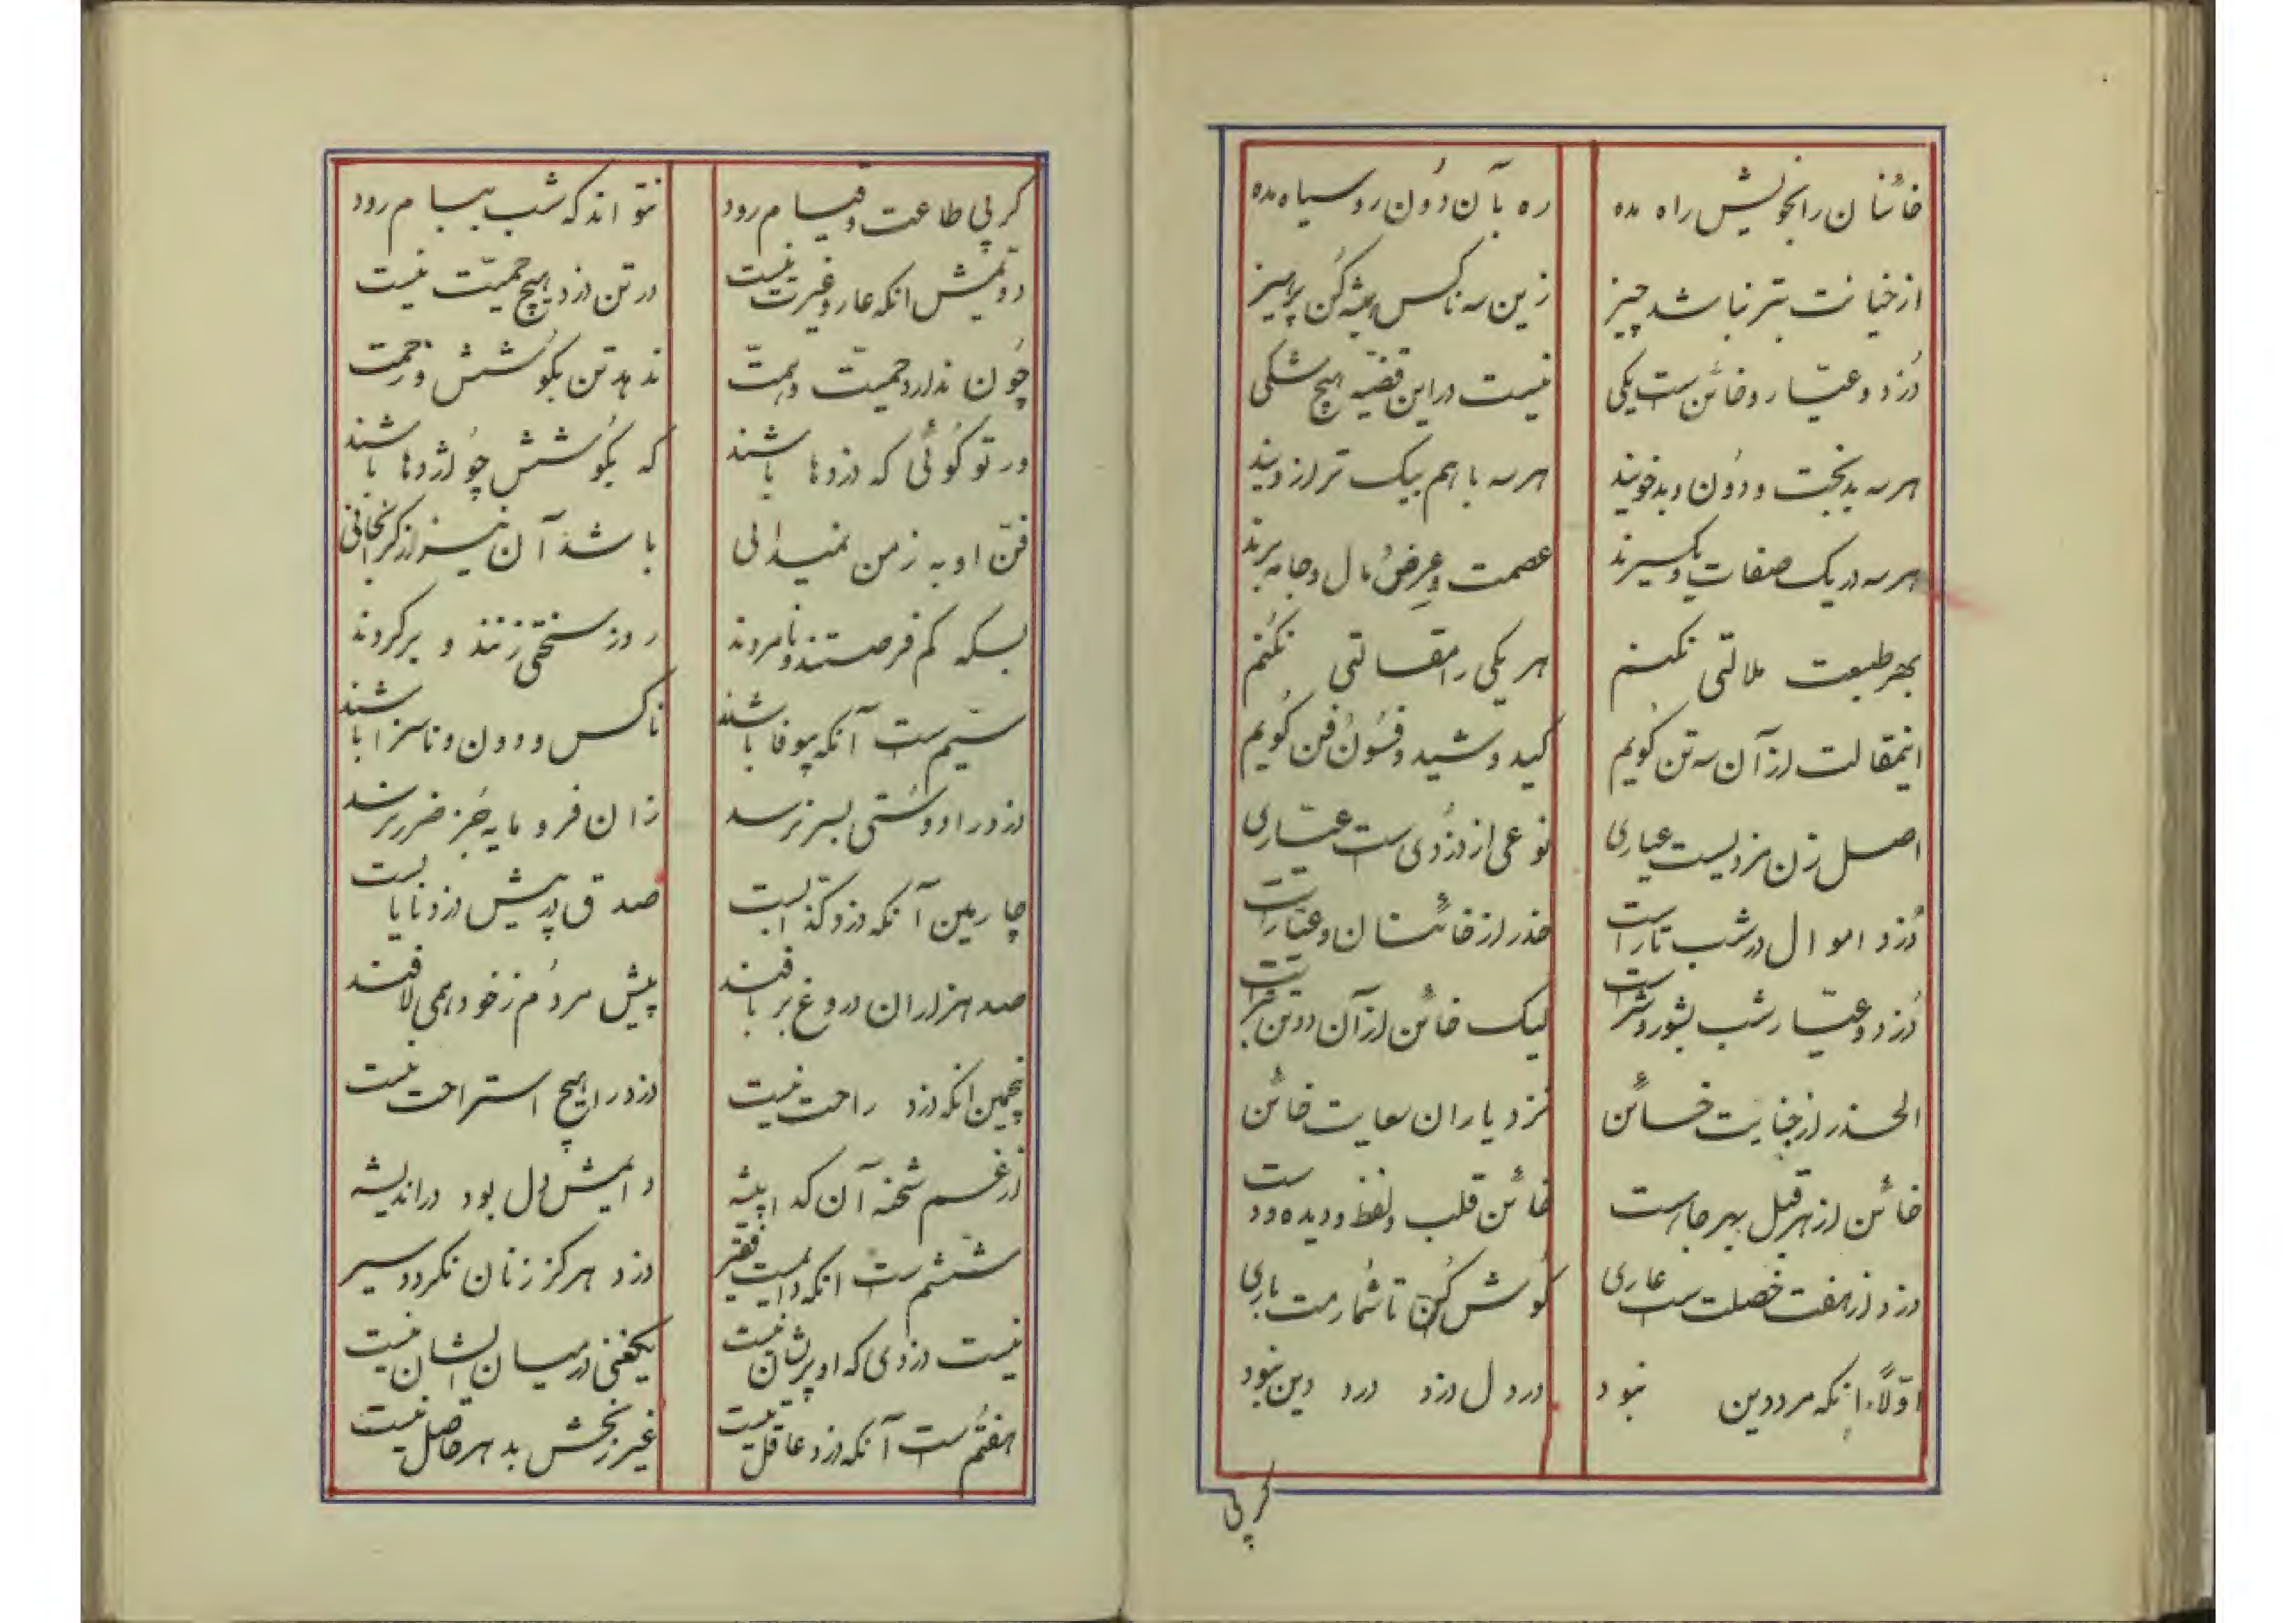 خائنان را بخویش راه مده
ره بآن دُون روسیاه مده
از خیانت بتر نباشد چیز
زین سه ناکس همیشه کُن پرهیز
دُزد و عیّار و خائن ست یکی
نیست در این قضیّه هیچ شکی
هر سه بدبخت و دوُن و بدخویند
هر سه با هم بیک ترازویند
هر سه در یک صفات و یکسیرند
عصمت و عِرضُ مال و جامه برند
بهر طبیعت ملالتی نکنم
هر یکی را مقالتی نکُنم
اینمقالت از آن سه تن کویم
کید و شید و فسُونُ فن کُویم
اصل زن مزدیست عیاری
نوعی از دزُدی ست عیّاری
دُزد اموال در شب تار است
حذر از خائنان و عیّار است
دُزد و عیّار شب بشور و شر است
لیک خائن از آن دو تن بتر است
الحذر از جنایت خائن
نزد یاران سعایت خائن
خائن از هر قبل بهر جا هست
خائن قلب و لفظ و دیده و دست
دزد از هفت خصلت ست عاری
کوُش کُن تا شُمارمت باری
اوّلاً انکه مرد دین نبود
در دل دزد درد دین نبود
کر پی
کر پی طاعت و قیام رود
نتواند که شب ببام رود
دوّمش انکه عار و غیرت نیست
در تن دزد هیچ حمیّت نیست
چوُن ندارد حمیّت و همّت
ندهد تن بکوُشش و زحمت
ور تو کوُئی که دزدها باشند
که بکوُشش چوُ اژدها باشند
فنّ او به ز من نمیدانی
باشد آن نیز از کرانجانی
بسکه کم فرصتند و نامردند
روز سختی زنند و برکردند
سیّم ست آنکه بیوفا باشند
ناکس و دون و ناسزا باشند
دزد را دوُستی بسر نرسد
زان فرومایه جُز ضرر نرسد
چارمین آنکه دزد کذّابست
صدق در پیش دزد نایابست
صد هزاران دروغ بر بافند
پیش مردُم ز خود همی لافند
پنجمین انکه دزد راحت نیست
دزد را هیچ استراحت نیست
از غم شحنه آن کدا پیشه
دایمش دل بود در اندیشه
ششّم ست انکه دایمست فقیر
دزد هرکز ز نان نکردد سیر
نیست دزدی که او پریشان نیست
یکغنی در میان ایشان نیست
هفتُم ست آنکه دزد عاقل نیست
غیر رنجش بدهر حاصل نیست